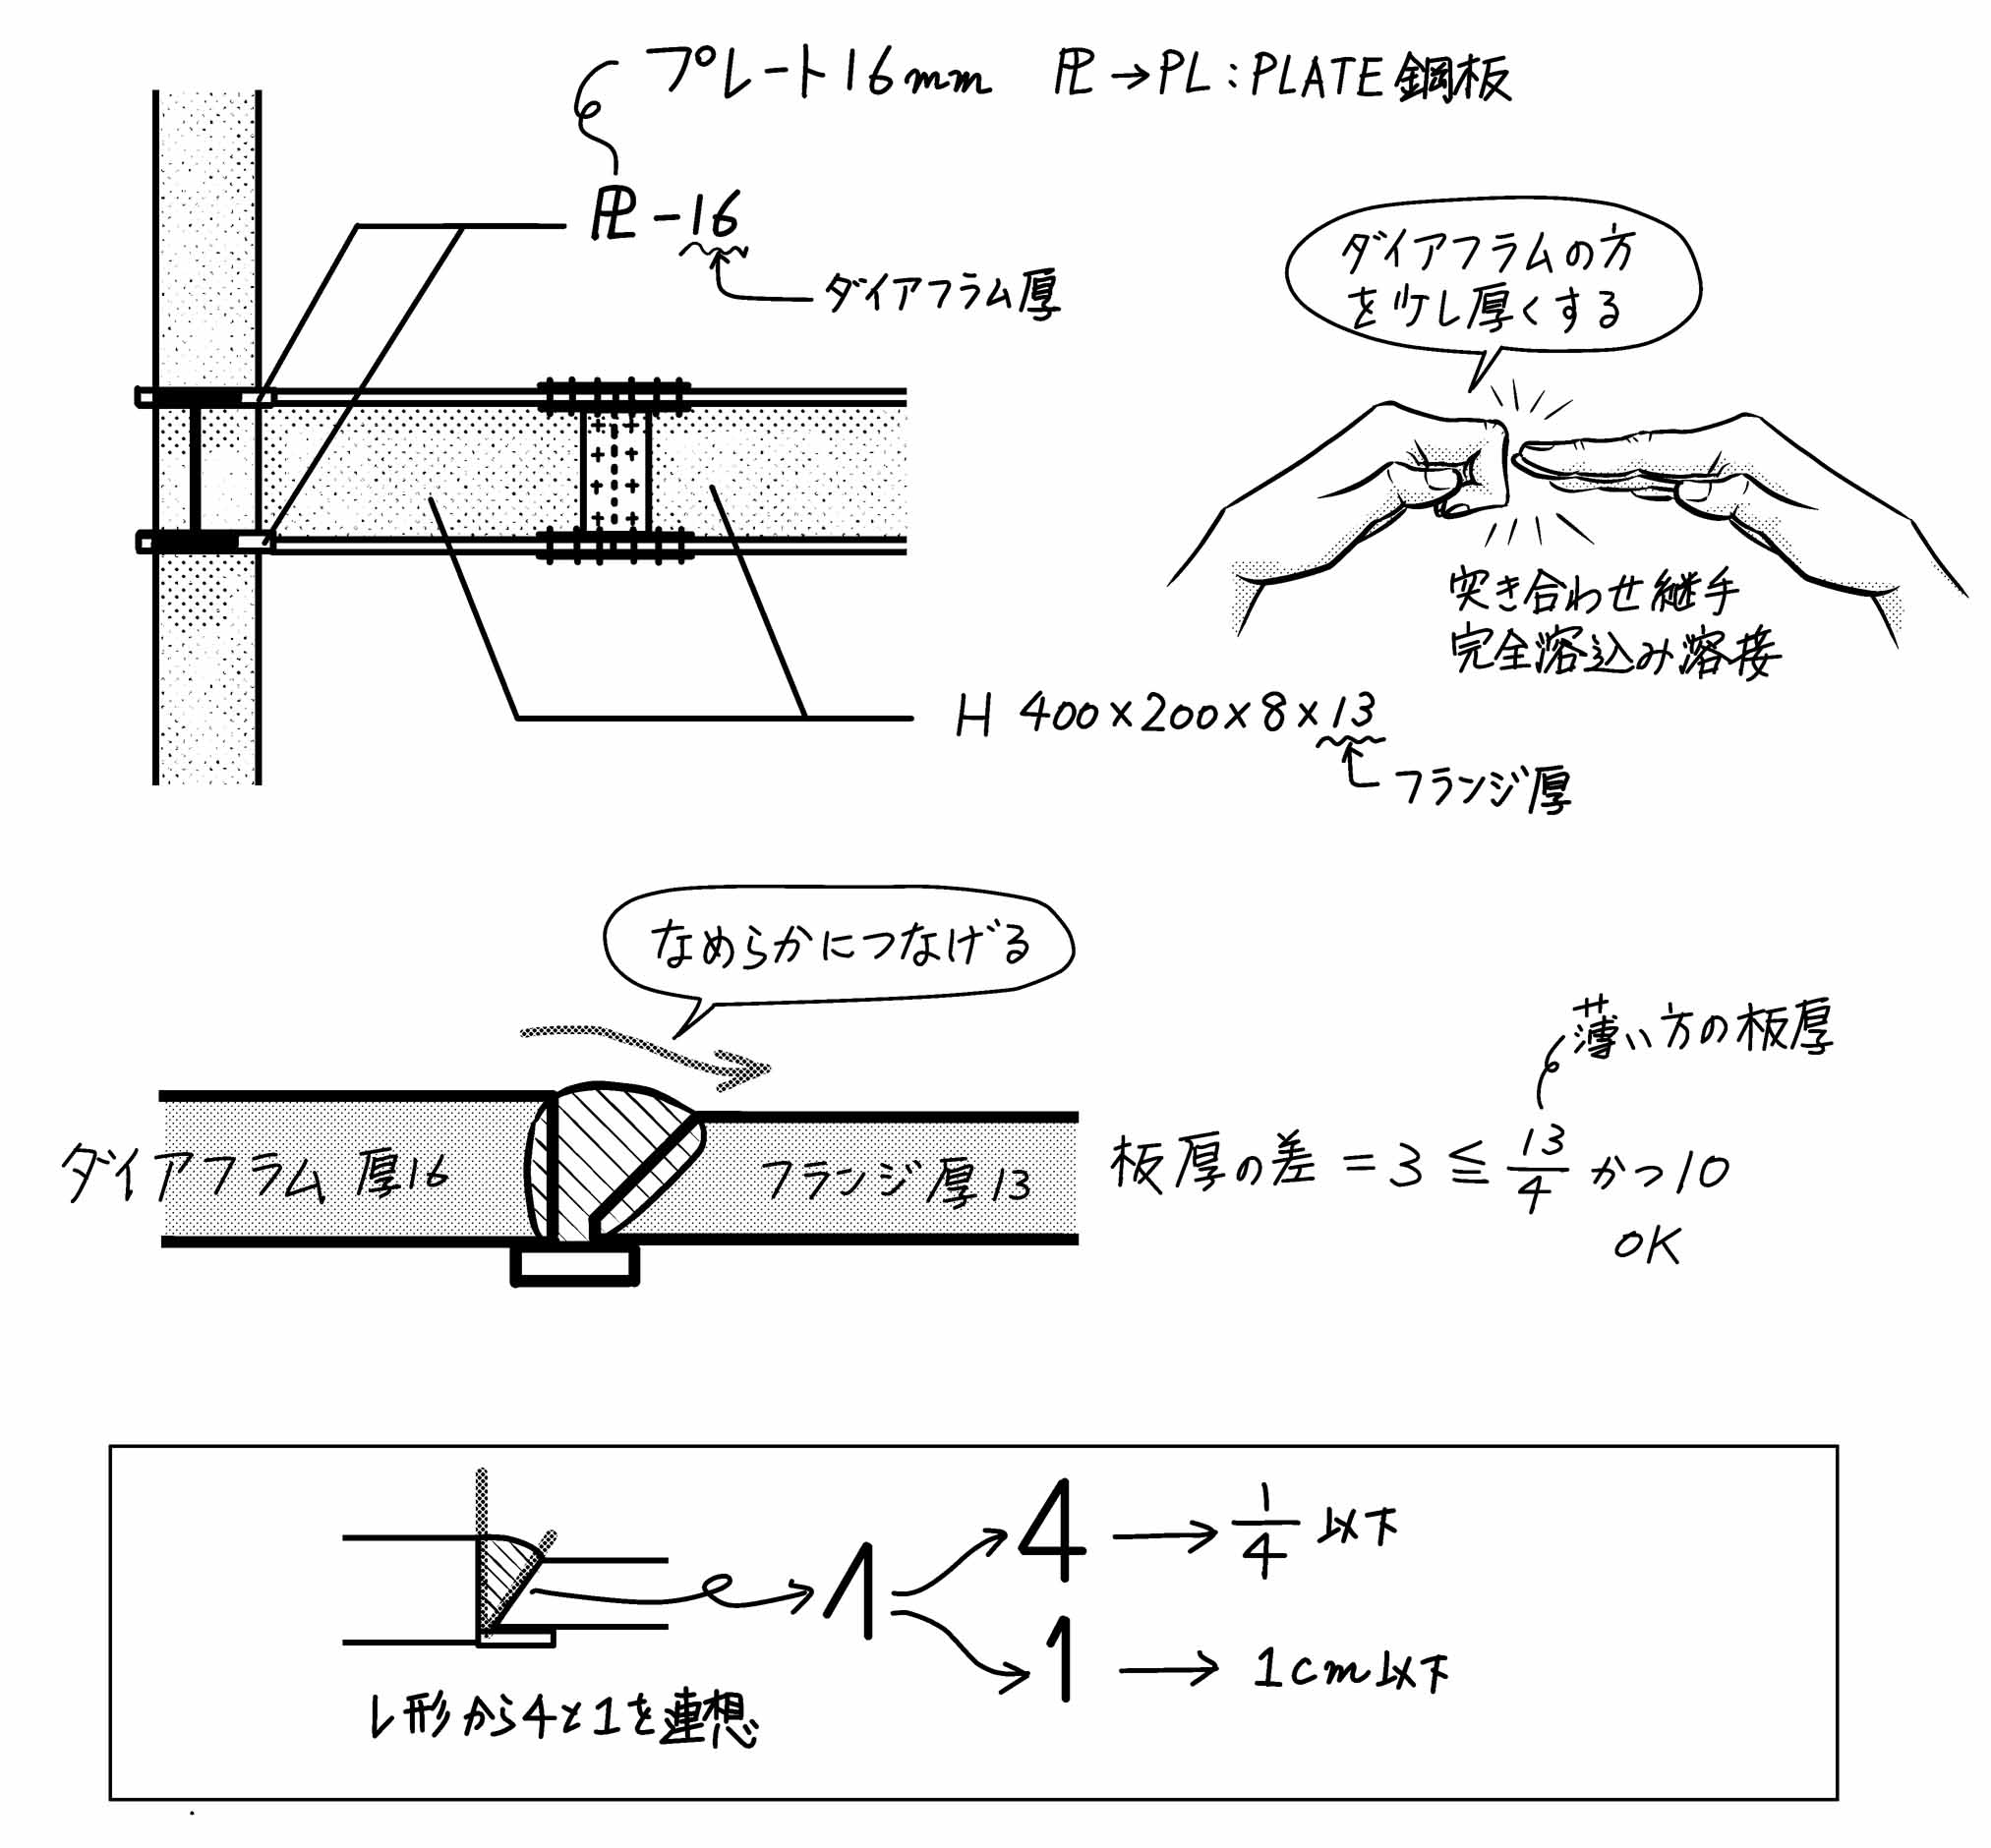 プレート16mm ㍐→PL:PLATE 鋼板
PL-16
ダイアフラム厚
ダイアフラムの方
を少し厚くする
突き合わせ継手
完全溶込み溶接
H 400×200×8×13
フランジ厚
なめらかにつなげる
薄い方の板厚
ダイアフラム 厚16
フランジ厚13
板厚の差 = 3 ≦ 13/4 かつ10
OK
4 → 1/4 以下
1 → 1cm以下
レ形から4と1を連想